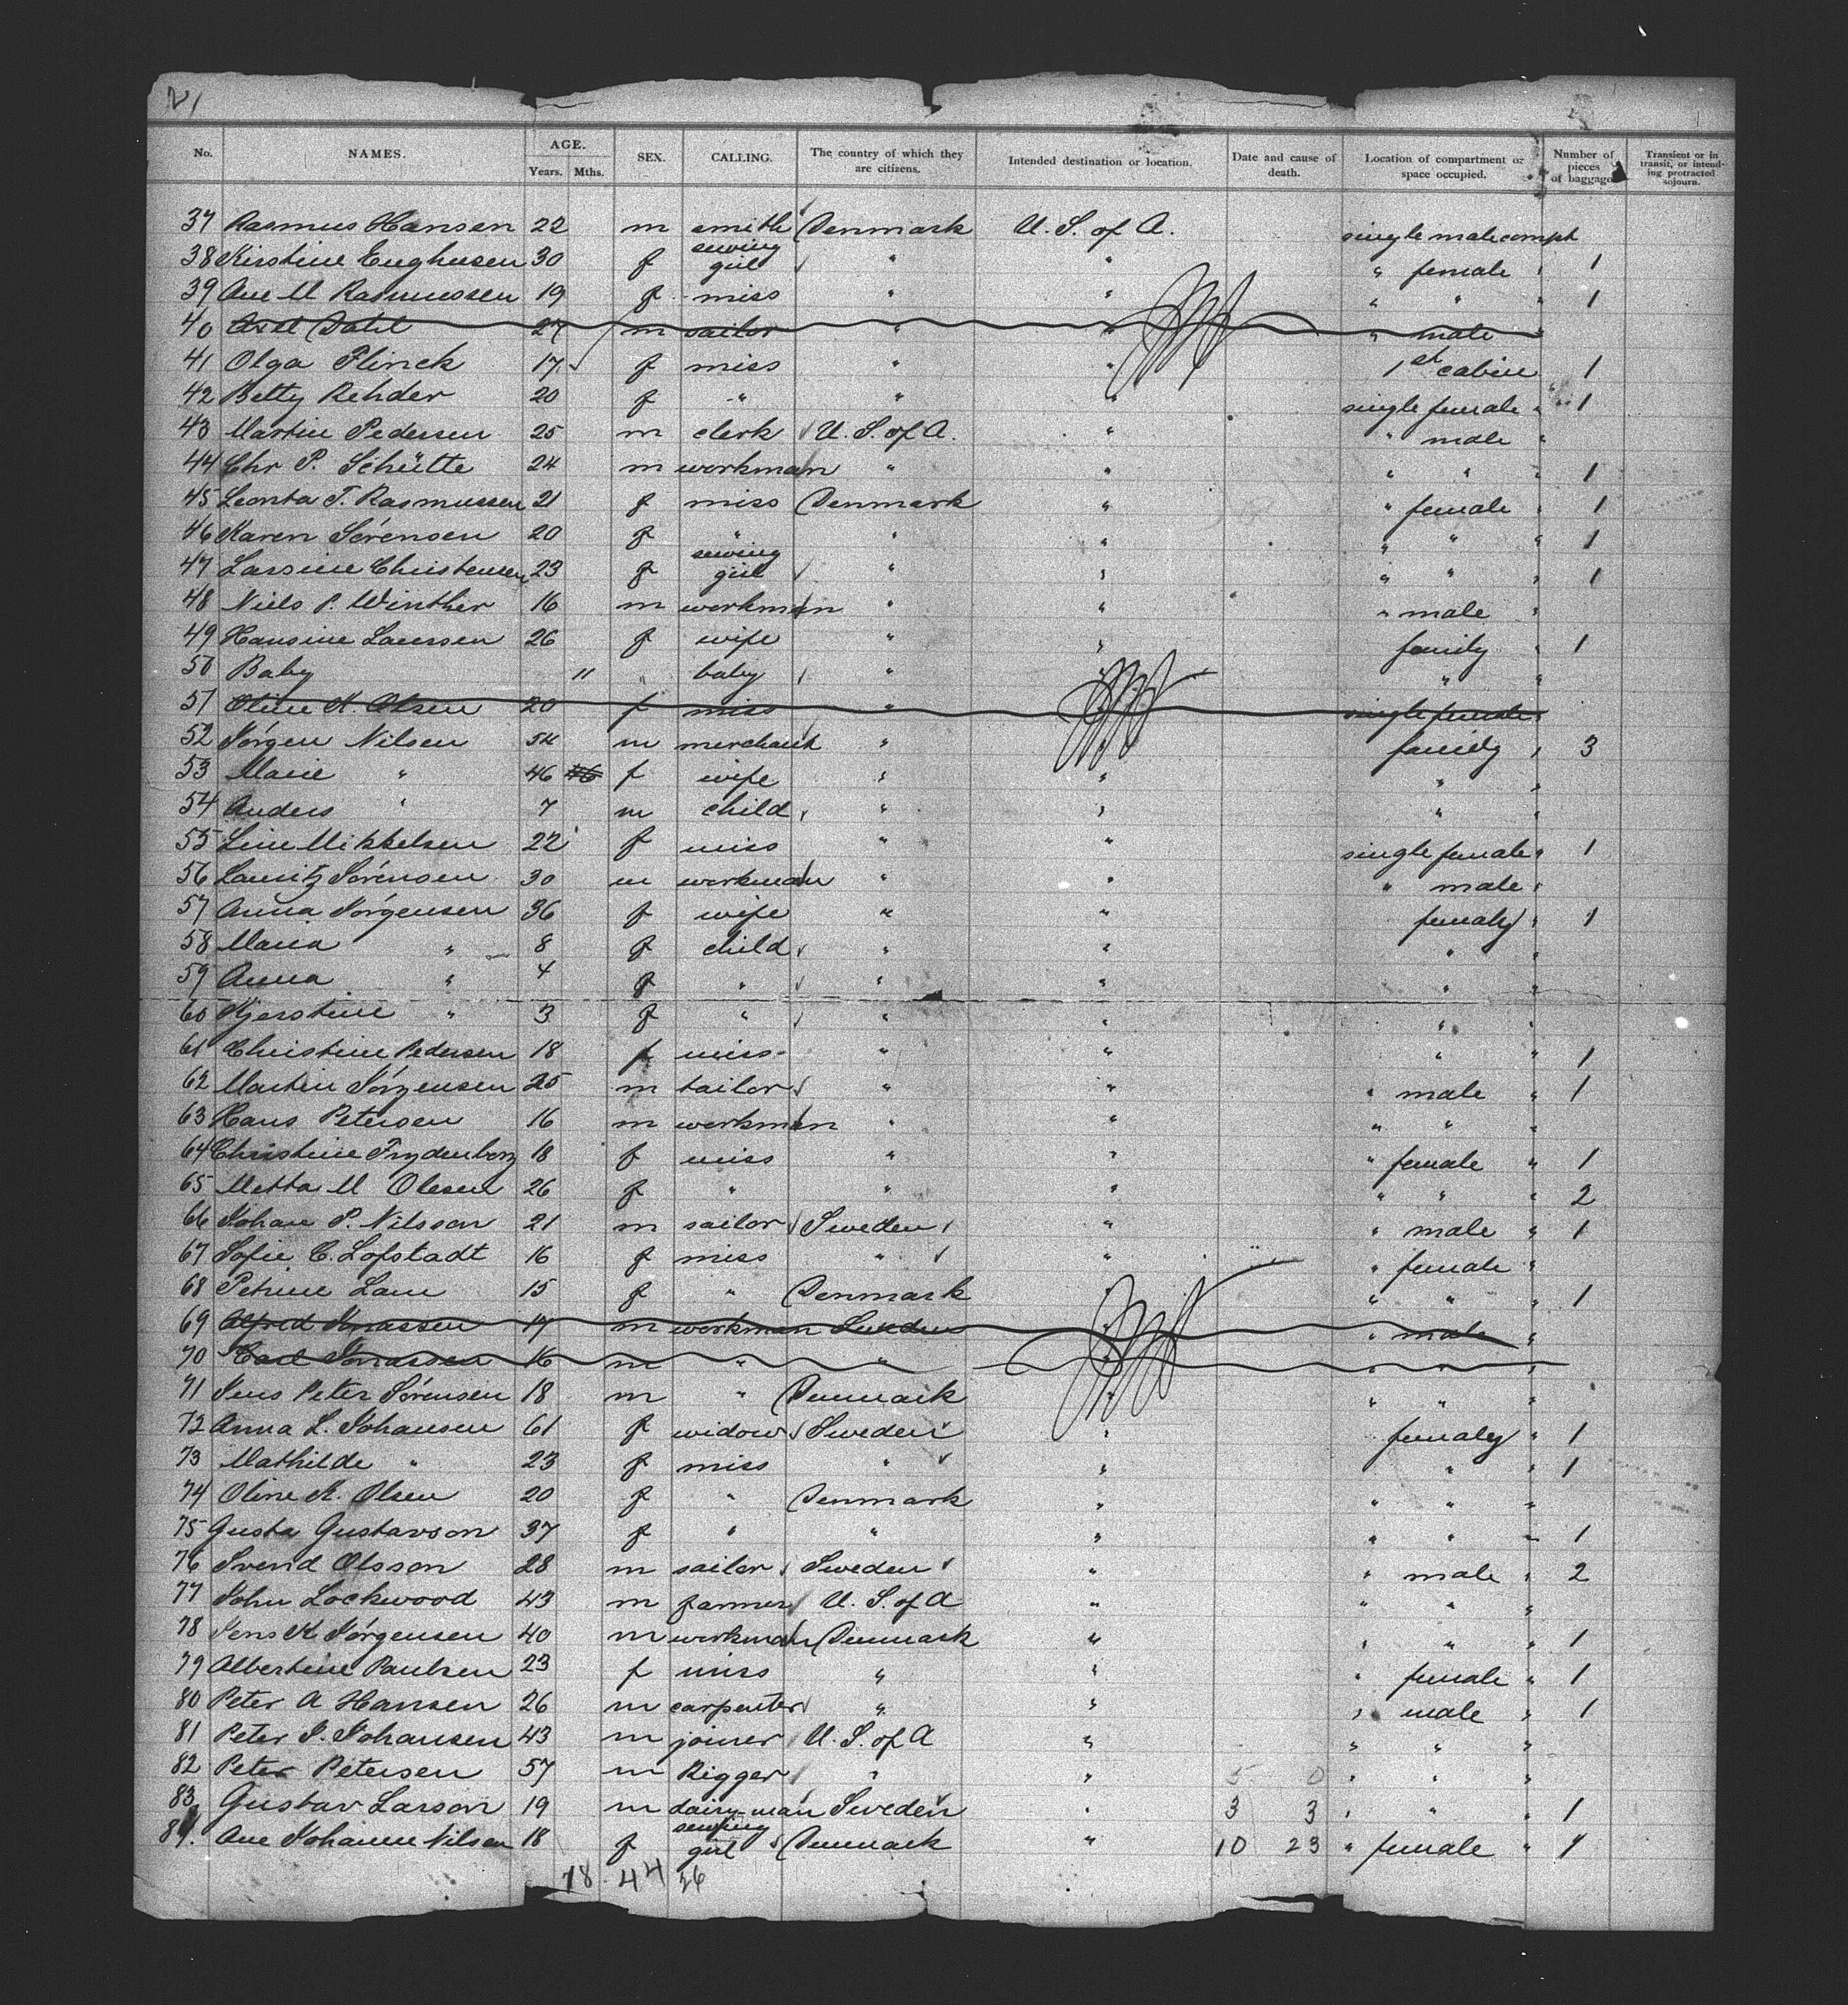 21
No. NAMES. AGE. Years. Mths. SEX. CALLING. The country of which they are citizens. Intended destination or location. Date and cause of death. Location of compartment or space occupied. Number of pieces of baggage Transient or in transit, or intending protracted sojourn.
37 Rasmus Hansen 22 m smith Denmark U. S. of A. single male compt
38 Kirstine Enghusen 30 f sewing girl " " " female " 1
39 Ane M Rasmussen 19 f miss " " " " " 1
40 Axel Dahl 27 m sailor " " " male "
41 Olga Flinck 17 f miss " " 1st cabin 1
42 Betty Rehder 20 f " " " single female " 1
43 Martin Pedersen 25 m clerk U. S. of A. " " male "
44 Chr P. Schütte 24 m workman " " " " " 1
45 Leonta T. Rasmussen 21 f miss Denmark " " female " 1
46 Karen Sörensen 20 f " " " " " " 1
47 Larsine Christensen 23 f sewing girl " " " " " 1
48 Niels P. Winther 16 m workman " " " male "
49 Hansine Laursen 26 f wife " " family " 1
50 Baby 11 " baby " " " "
51 Oline K. Olsen 20 f miss " " single female "
52 Jörgen Nilsen 54 m merchant " " family " 3
53 Marie " 46 46 f wife " " " "
54 Anders " 7 m child " " " "
55 Line Mikkelsen 22 f miss " " single female " 1
56 Lauritz Sörensen 30 m workman " " " male "
57 Anna Jörgensen 36 f wife " " famaly " 1
58 Maria " 8 f child " " " "
59 Anna " 4 f " " " " "
60 Kjerstine " 3 f " " " " "
61 Christine Pedersen 18 f miss " " " " 1
62 Martin Jörgensen 25 m tailor " " " male " 1
63 Hans Petersen 16 m workman " " " " "
64 Christine Frydenberg 18 f miss " " " female " 1
65 Metta M Olesen 26 f " " " " " " 2
66 Johan P. Nilsson 21 m sailor Sweden " " male " 1
67 Sofie C. Lofstadt 16 f miss " " " female "
68 Petrine Lam 15 f " Denmark " " " " 1
69 Alfred Jonassen 17 m workman Sweden " " male "
70 Carl Jonassen 16 m " " " " " "
71 Jens Peter Sörensen 18 m " Denmark " " " "
72 Anna L. Johansen 61 f widow Sweden " famaly " 1
73 Mathilde " 23 f miss " " " " 1
74 Oline K. Olsen 20 f " Denmark " " " "
75 Gusta Gustavson 37 f " " " " " " 1
76 Svend Olsson 28 m sailor Sweden " " male " 2
77 John Lockwood 43 m farmer U. S. of A " " " "
78 Jens K Jörgensen 40 m workman Denmark " " " " 1
79 Albertine Paulsen 23 f miss " " " female " 1
80 Peter A Hansen 26 m carpenter " " " male " 1
81 Peter J. Johansen 43 m joiner U. S. of A " " " "
82 Peter Petersen 57 m Rigger " " 5 0 " " "
83 Gustav Larson 19 m dairy-man Sweden " 3 3 " " " 1
84. Ane Johanne Nilsen 18 f sewing girl Denmark " 10 23 " female " 1
18. 44 26